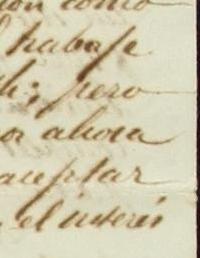 como
trabaje
pero
ahora
aceptar
el interés